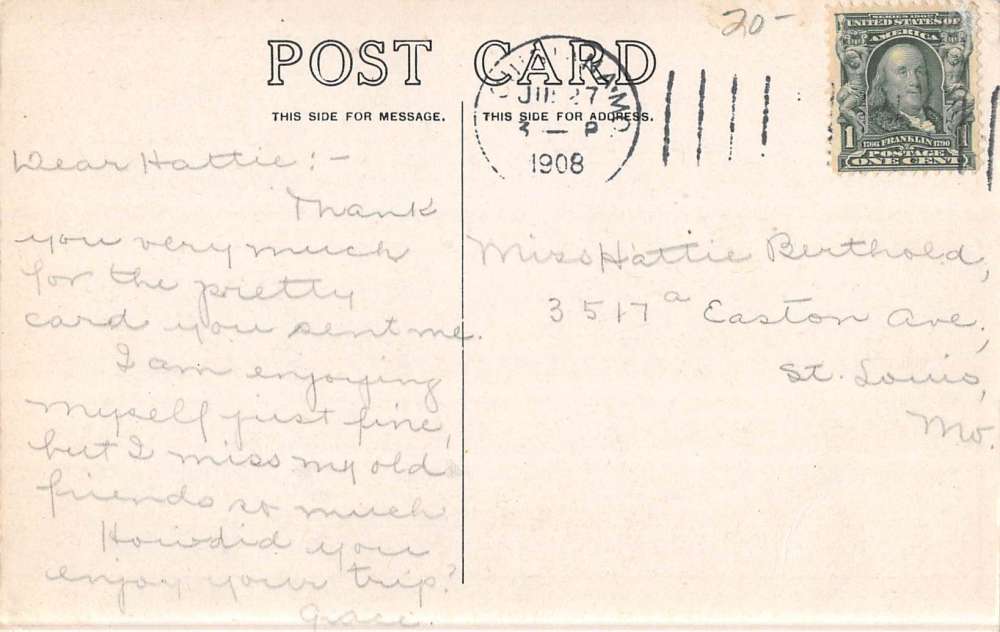 20-
POST CARD
THIS SIDE FOR MESSAGE.
THIS SIDE FOR ADDRESS.
MO.
27
3 - P
1908
SERIES 1902
UNITED STATES OF
AMERICA
1 1
1706 FRANKLIN 1790
POSTAGE
ONE CENT
Dear Hattie:-
Thank
you very much
for the pretty
card you sent me.
I am enjoying
myself just fine,
but I miss my old
friends so much
How did you
enjoy your trip?
Grace.
Miss Hattie Berthold,
3517a Easton Ave.,
St. Louis,
Mo.